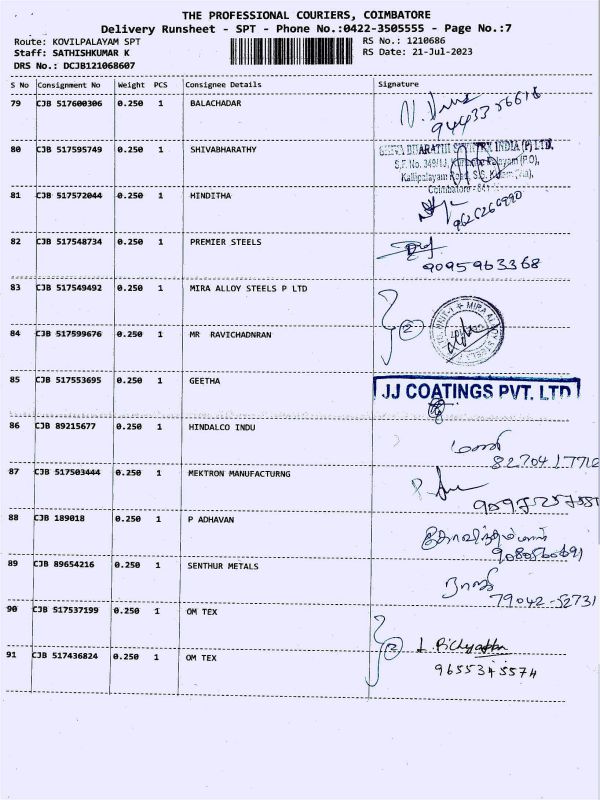 THE PROFESSIONAL COURIERS, COIMBATORE
Delivery Runsheet - SPT - Phone No.:0422-3505555 - Page No.:7
Route: KOVILPALAYAM SPT RS No.: 1210686
Staff: SATHISHKUMAR K RS Date: 21-Jul-2023
DRS No.: DCJB121068607
S No Consignment No Weight PCS Consignee Details Signature
79 CJB 517600306 0.250 1 BALACHADAR
80 CJB 517595749 0.250 1 SHIVABHARATHY
BHARATHI INDIA (P) LTD.
S.F. No. 349/1
Kallipalayam Road, S.S. Kulam (Via),
Coimbatore - 641
81 CJB 517572044 0.250 1 HINDITHA
82 CJB 517548734 0.250 1 PREMIER STEELS
9095963368
83 CJB 517549492 0.250 1 MIRA ALLOY STEELS P LTD
2
84 CJB 517599676 0.250 1 MR RAVICHADNRAN
85 CJB 517553695 0.250 1 GEETHA JJ COATINGS PVT. LTD
86 CJB 89215677 0.250 1 HINDALCO INDU
87 CJB 517503444 0.250 1 MEKTRON MANUFACTURNG
88 CJB 189018 0.250 1 P ADHAVAN
89 CJB 89654216 0.250 1 SENTHUR METALS
79042-52731
90 CJB 517537199 0.250 1 OM TEX
2
91 CJB 517436824 0.250 1 OM TEX
9655345574